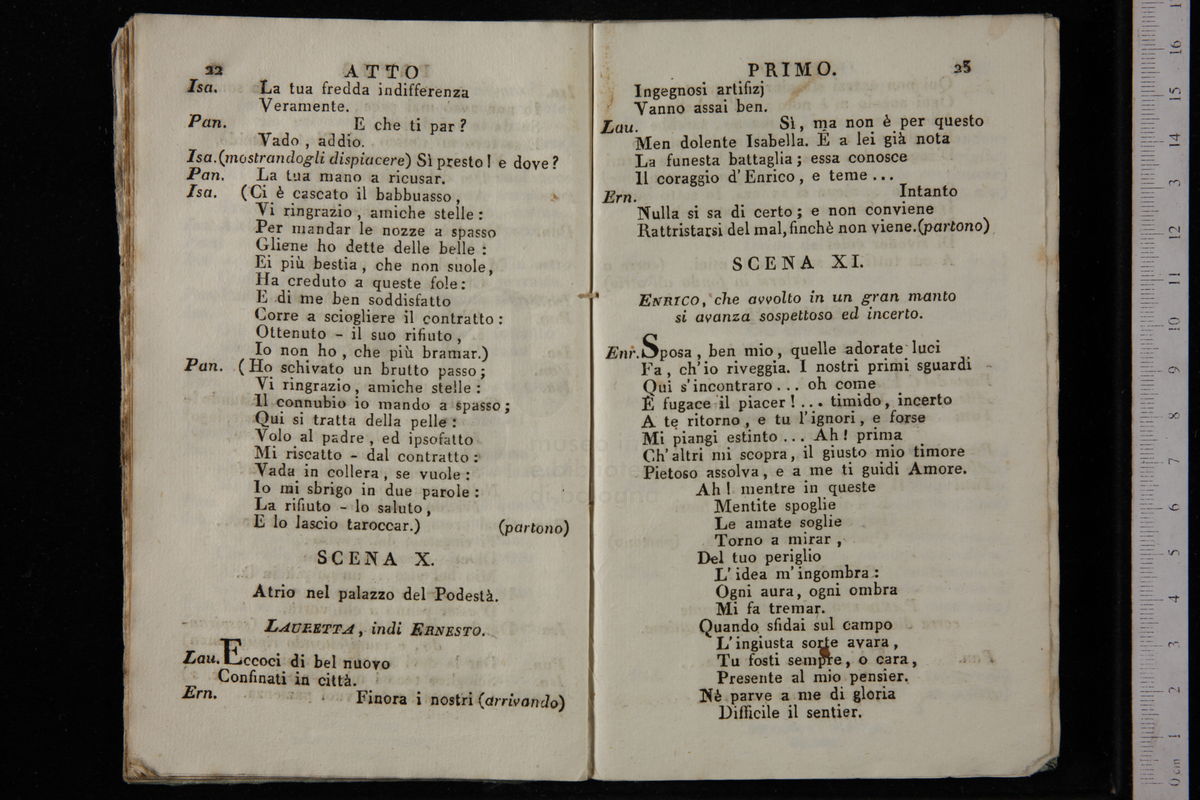 22 ATTO
Isa. La tua fredda indifferenza
Veramente.
Pan. E che ti par?
Vado, addio.
Isa. (mostrandogli dispiacere) Sì presto! e dove?
Pan. La tua mano a ricusar.
Isa. (Ci è cascato il babbuasso,
Vi ringrazio, amiche stelle:
Per mandar le nozze a spasso
Gliene ho dette delle belle:
Ei più bestia, che non suole,
Ha creduto a queste fole:
E di me ben soddisfatto
Corre a sciogliere il contratto:
Ottenuto - il suo rifiuto,
Io non ho, che più bramar.)
Pan. (Ho schivato un brutto passo;
Vi ringrazio, amiche stelle:
Il connubio io mando a spasso;
Qui si tratta della pelle:
Volo al padre, ed ipsofatto
Mi riscatto - dal contratto:
Vada in collera, se vuole:
Io mi sbrigo in due parole:
La rifiuto - lo saluto,
E lo lascio taroccar.) (partono)
SCENA X.
Atrio nel palazzo del Podestà.
LAURETTA, indi ERNESTO.
Lau. Eccoci di bel nuovo
Confinati in città.
Ern. Finora i nostri (arrivando)
PRIMO. 23
Ingegnosi artifizj
Vanno assai ben.
Lau. Sì, ma non è per questo
Men dolente Isabella. È a lei già nota
La funesta battaglia; essa conosce
Il coraggio d'Enrico, e teme...
Ern. Intanto
Nulla si sa di certo; e non conviene
Rattristarsi del mal, finchè non viene. (partono)
SCENA XI.
ENRICO, che avvolto in un gran manto
si avanza sospettoso ed incerto.
Enr. Sposa, ben mio, quelle adorate luci
Fa, ch'io riveggia. I nostri primi sguardi
Qui s'incontraro... oh come
È fugace il piacer!... timido, incerto
A te ritorno, e tu l'ignori, e forse
Mi piangi estinto... Ah! prima
Ch'altri mi scopra, il giusto mio timore
Pietoso assolva, e a me ti guidi Amore.
Ah! mentre in queste
Mentite spoglie
Le amate soglie
Torno a mirar,
Del tuo periglio
L'idea m'ingombra:
Ogni aura, ogni ombra
Mi fa tremar.
Quando sfidai sul campo
L'ingiusta sorte avara,
Tu fosti sempre, o cara,
Presente al mio pensier.
Nè parve a me di gloria
Difficile il sentier.